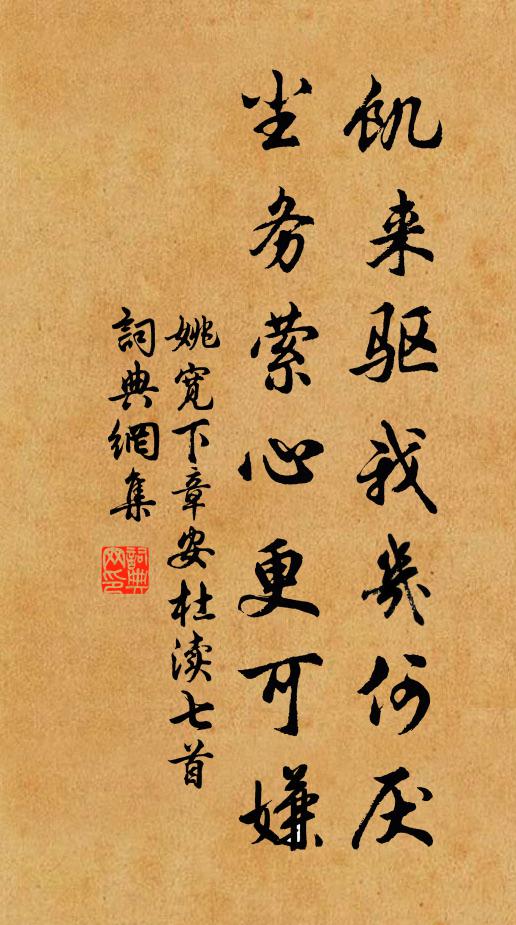 飢来驱我幾何厌
尘务萦心更可嫌
姚宽下章安杜渎七首
詞典網集
詞典网印